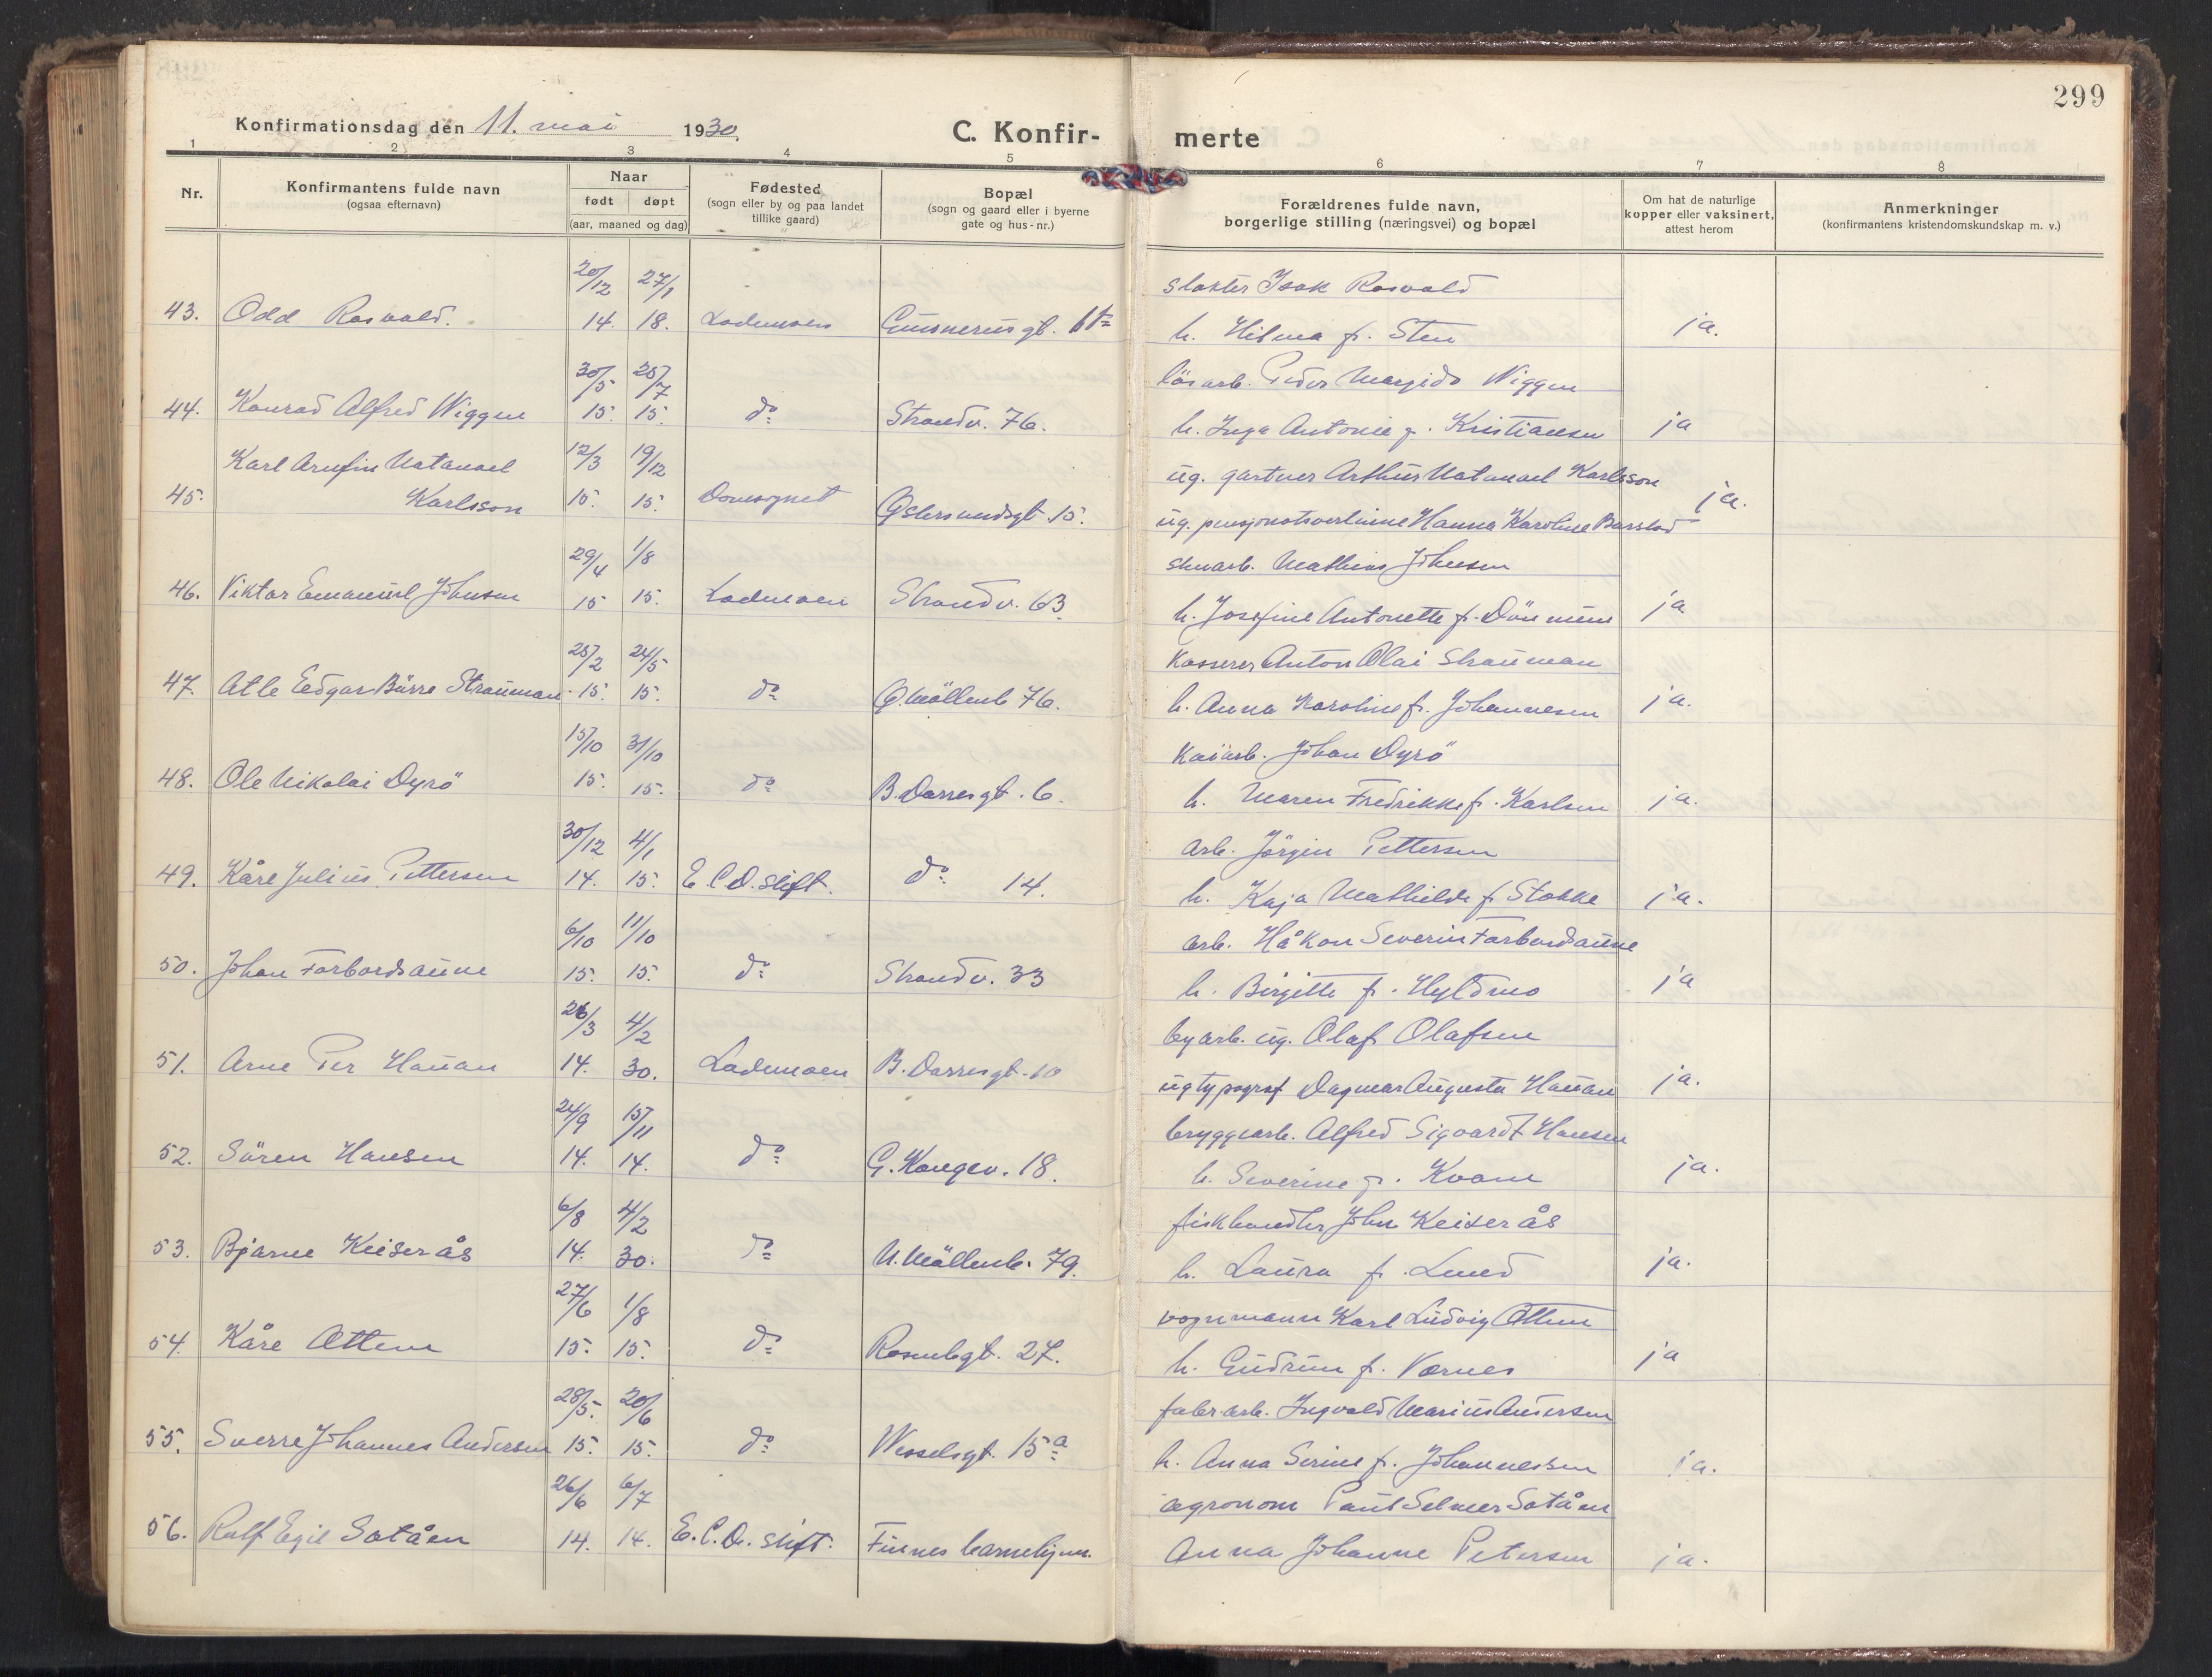 299
Konfirmationsdag den 11. mai 1930.
C. Konfir-
merte
1 2 3 4 5 6 7 8
Nr.
Konfirmantens fulde navn
(ogsaa efternavn)
Naar
født døpt
(aar, maaned og dag)
Fødested
(sogn eller by og paa landet
tillike gaard)
Bopæl
(sogn og gaard eller i byerne
gate og hus-nr.)
Forældrenes fulde navn,
borgerlige stilling (næringsvei) og bopæl
Om hat de naturlige
kopper eller vaksinert,
attest herom
Anmerkninger
(konfirmantens kristendomskundskap m. v.)
20/12 27/1 slakter Isak Rosvold
43. Odd Rosvold. 14. 18. Lademoen Gunnerusgt. h. Hilma f. Sten ja.
30/5 25/7 lösarb. Peder Margido Wiggen
44. Konrad Alfred Wiggen 15. 15. do Strandv. 76. h. Inga Antonie f. Kristiansen ja
Karl Arnfin Natanael 12/3 19/12 ug. gartner Arthur Natanael Karlsson
45. Karlsson 15. 15. Domsognet Østersundsgt. 15. ug. pensjonatsvertinne Hanna Karoline ja.
29/4 1/8 stenarb. Mathias Johnsen
46. Viktor Emanuel Johnsen 15 15. Lademoen Strandv. 63. h. Josefine Antonette f. Dönnum ja
25/2 24/5 Kasserer Anton Olai Strauman
47. Atle Eedgar Børre Strauman 15. 15. do Ø. Möllenb 76. h. Anna Karoline f. Johannesen ja.
15/10 31/10 Kaiarb. Johan Dyrö
48. Ole Nikolai Dyrö 15. 15. do B. Dassesgt. 6. h. Maren Fredrikke f. Karlsen ja.
30/12 4/1 arb. Jörgen Pettersen
49. Kåre Julius Pettersen 14. 15. E. C. D. stift. do 14. h. Kaja Mathilde f. Stokke ja.
6/10 11/10 arb. Håkon Severin Forbordsaune
50. Johan Forbordsaune 15. 15. do Strandv. 33 h. Birgitte f. Hyldmo ja
26/3 4/2 byarb. ug. Olaf Olafsen
51. Arne Per Hauan 14. 30. Lademoen B. Dassesgt. 10 ug typograf Dagmar Augusta Hauan ja.
24/9 15/11 bryggearb. Alfred Sigvardt Hansen
52. Sören Hansen 14. 14. do G. Kongev. 18. h. Severine f. Kvam ja.
6/8 4/2 fiskhandler John Keiserås
53. Bjarne Keiserås 14. 30. do N. Möllenb. 79. h. Laura f. Lund ja.
27/6 1/8 vognmann Karl Ludvig Ottem
54. Kåre Ottem 15. 15. do Rosenbgt. 27. h. Gudrun f. Værnes ja
28/5. 20/6 fabr.arb. Ingvald Marius Andersen
55. Sverre Johannes Andersen 15. 15. do Wesselsgt. 15a h. Anna Serine f. Johannessen ja.
26/6 6/7 agronom Paul Selmer Sotåen
56. Rolf Egil Sotåen 14. 14. E. C. D. stift. Finnes barnehjem. Anna Johanne Petersen ja.